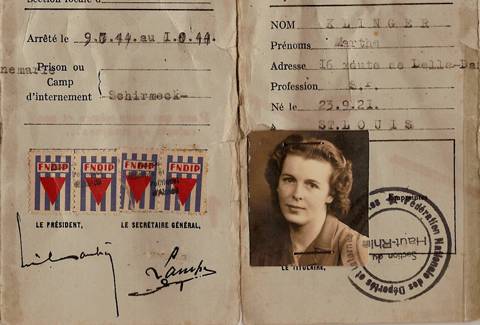 Section locale d
Arrêté le 9.3.44. au 1.9.44.
Prison ou
Camp
d'internement
Schirmeck-
FNDIP FNDIP FNDIP FNDIP
LE PRÉSIDENT, LE SECRÉTAIRE GÉNÉRAL,
NOM KLINGER
Prénoms Marthe
Adresse 16 route de
Profession s.p.
Né le 23.9.21.
A ST.LOUIS
Empreintes
Fédération Nationale des Déportés et Internés
Section du
Haut-Rhin
LE TITULAIRE,